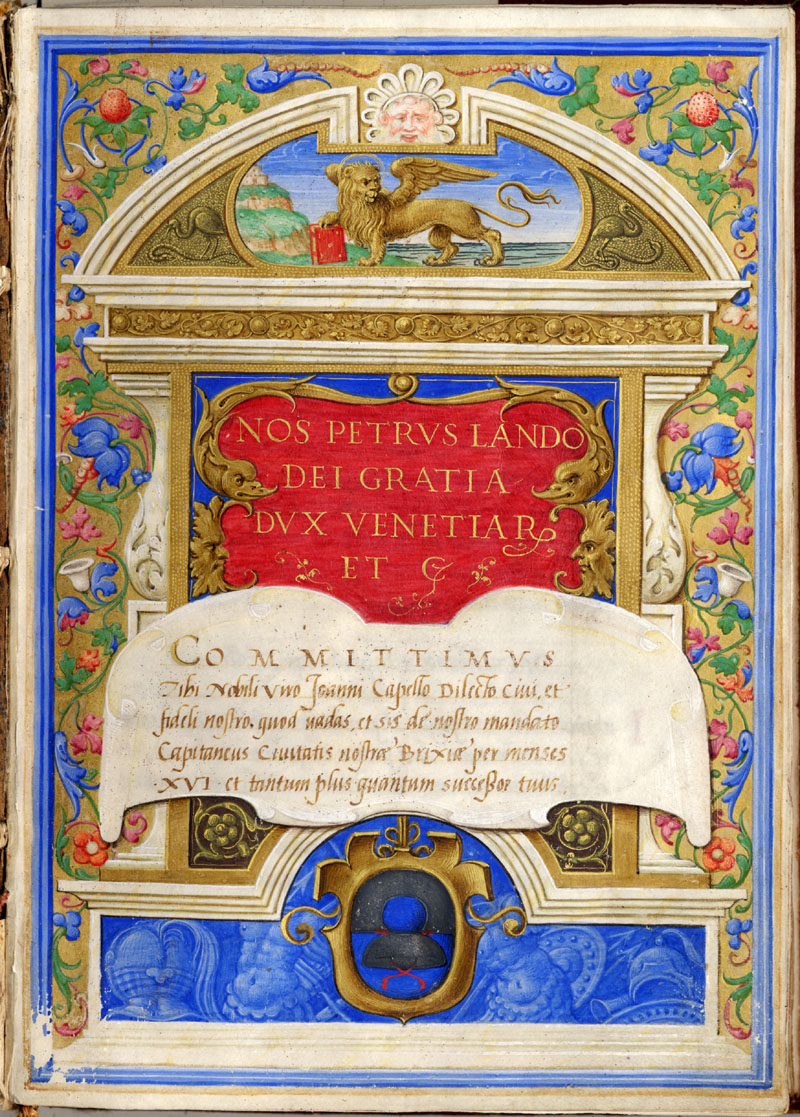 NOS PETRVS LANDO
DEI GRATIA
DVX VENETIAR
ET C
COMMITTIMVS
Tibi Nobili Viro Joanni Capello Dilecto Civi, et
fideli nostro. quod vadas, et sis de nostro mandato
Capitaneus Civitatis nostræ Brixiæ per menses
XVI. et tantum plus quantum successor tuus.